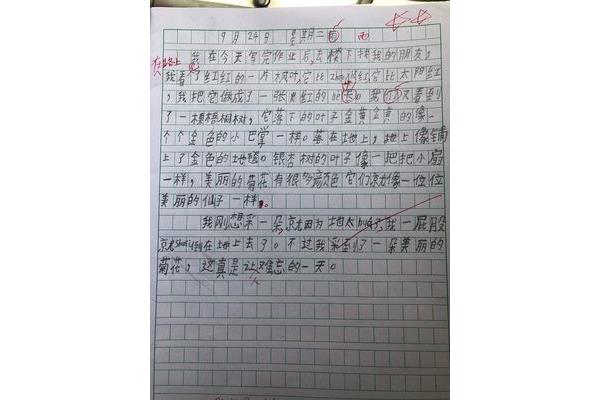 9月24日 星期二 雨 雨
在路上 我在今天写完作业后,去楼下找我的朋友,
我看见了红红的一片枫叶,它比zhu红,它比太阳红
,我把它做成了一张的。我又看到
了一棵梧桐树,它落下的叶子金黄金黄的像一
个个金色的小巴掌一样。落在地上,地上像铺
上了金色的地毯。银杏树的叶子像一把把小扇
一样,美丽的菊花有很多颜色它们就像一位位
美丽的仙子一样。
我刚想采一朵,就因为地太hua了,我一屁股
就shuai倒在地上去了。不过我采到了一朵美丽的
菊花,这真是让人难忘的一天。